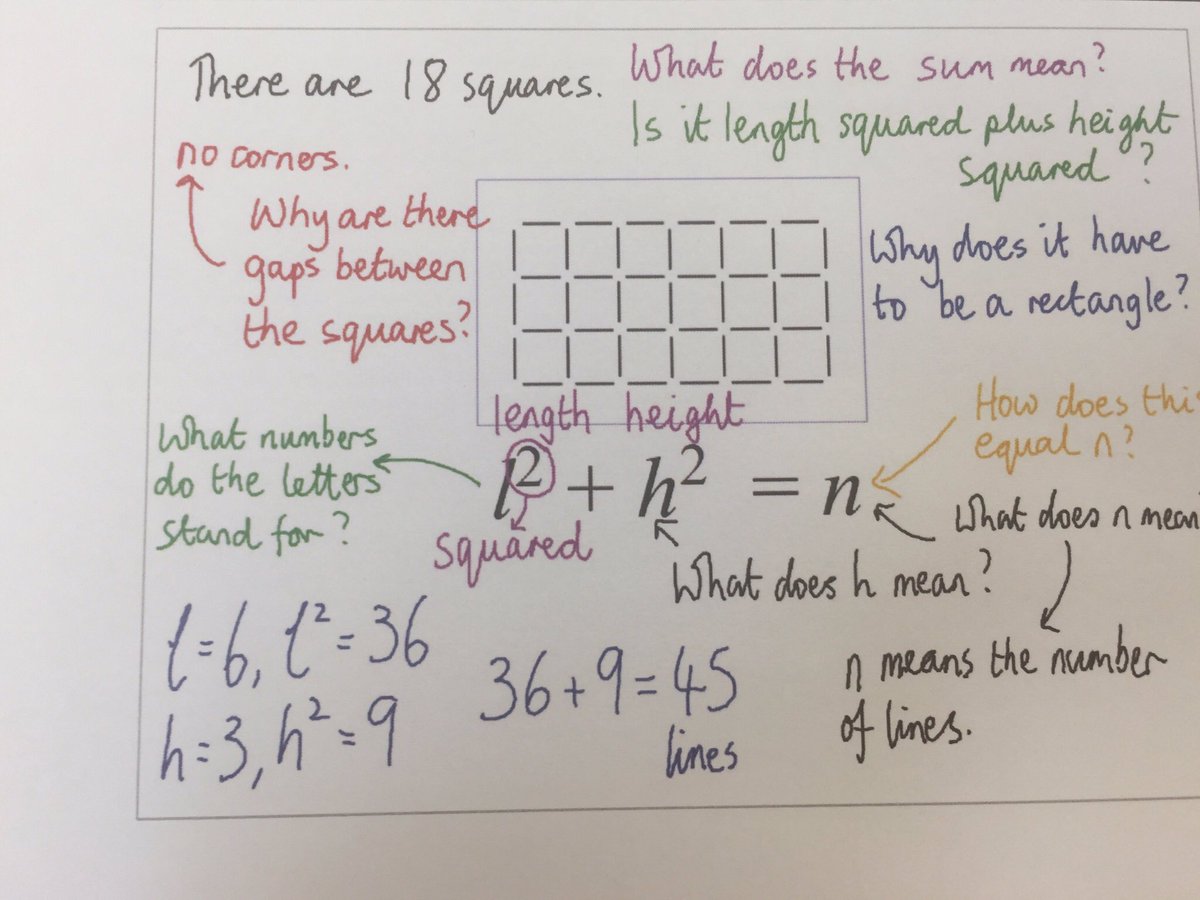 There are 18 squares.
What does the sum mean?
Is it length squared plus height
squared?
no corners.
Why are there
gaps between
the squares?
Why does it have
to be a rectangle?
length height
What numbers
do the letters
stand for?
l² + h² = n
squared
How does this
equal n?
What does n mean
What does h mean?
n means the number
of lines.
l=6, l²=36
h=3, h²=9
36+9=45
lines